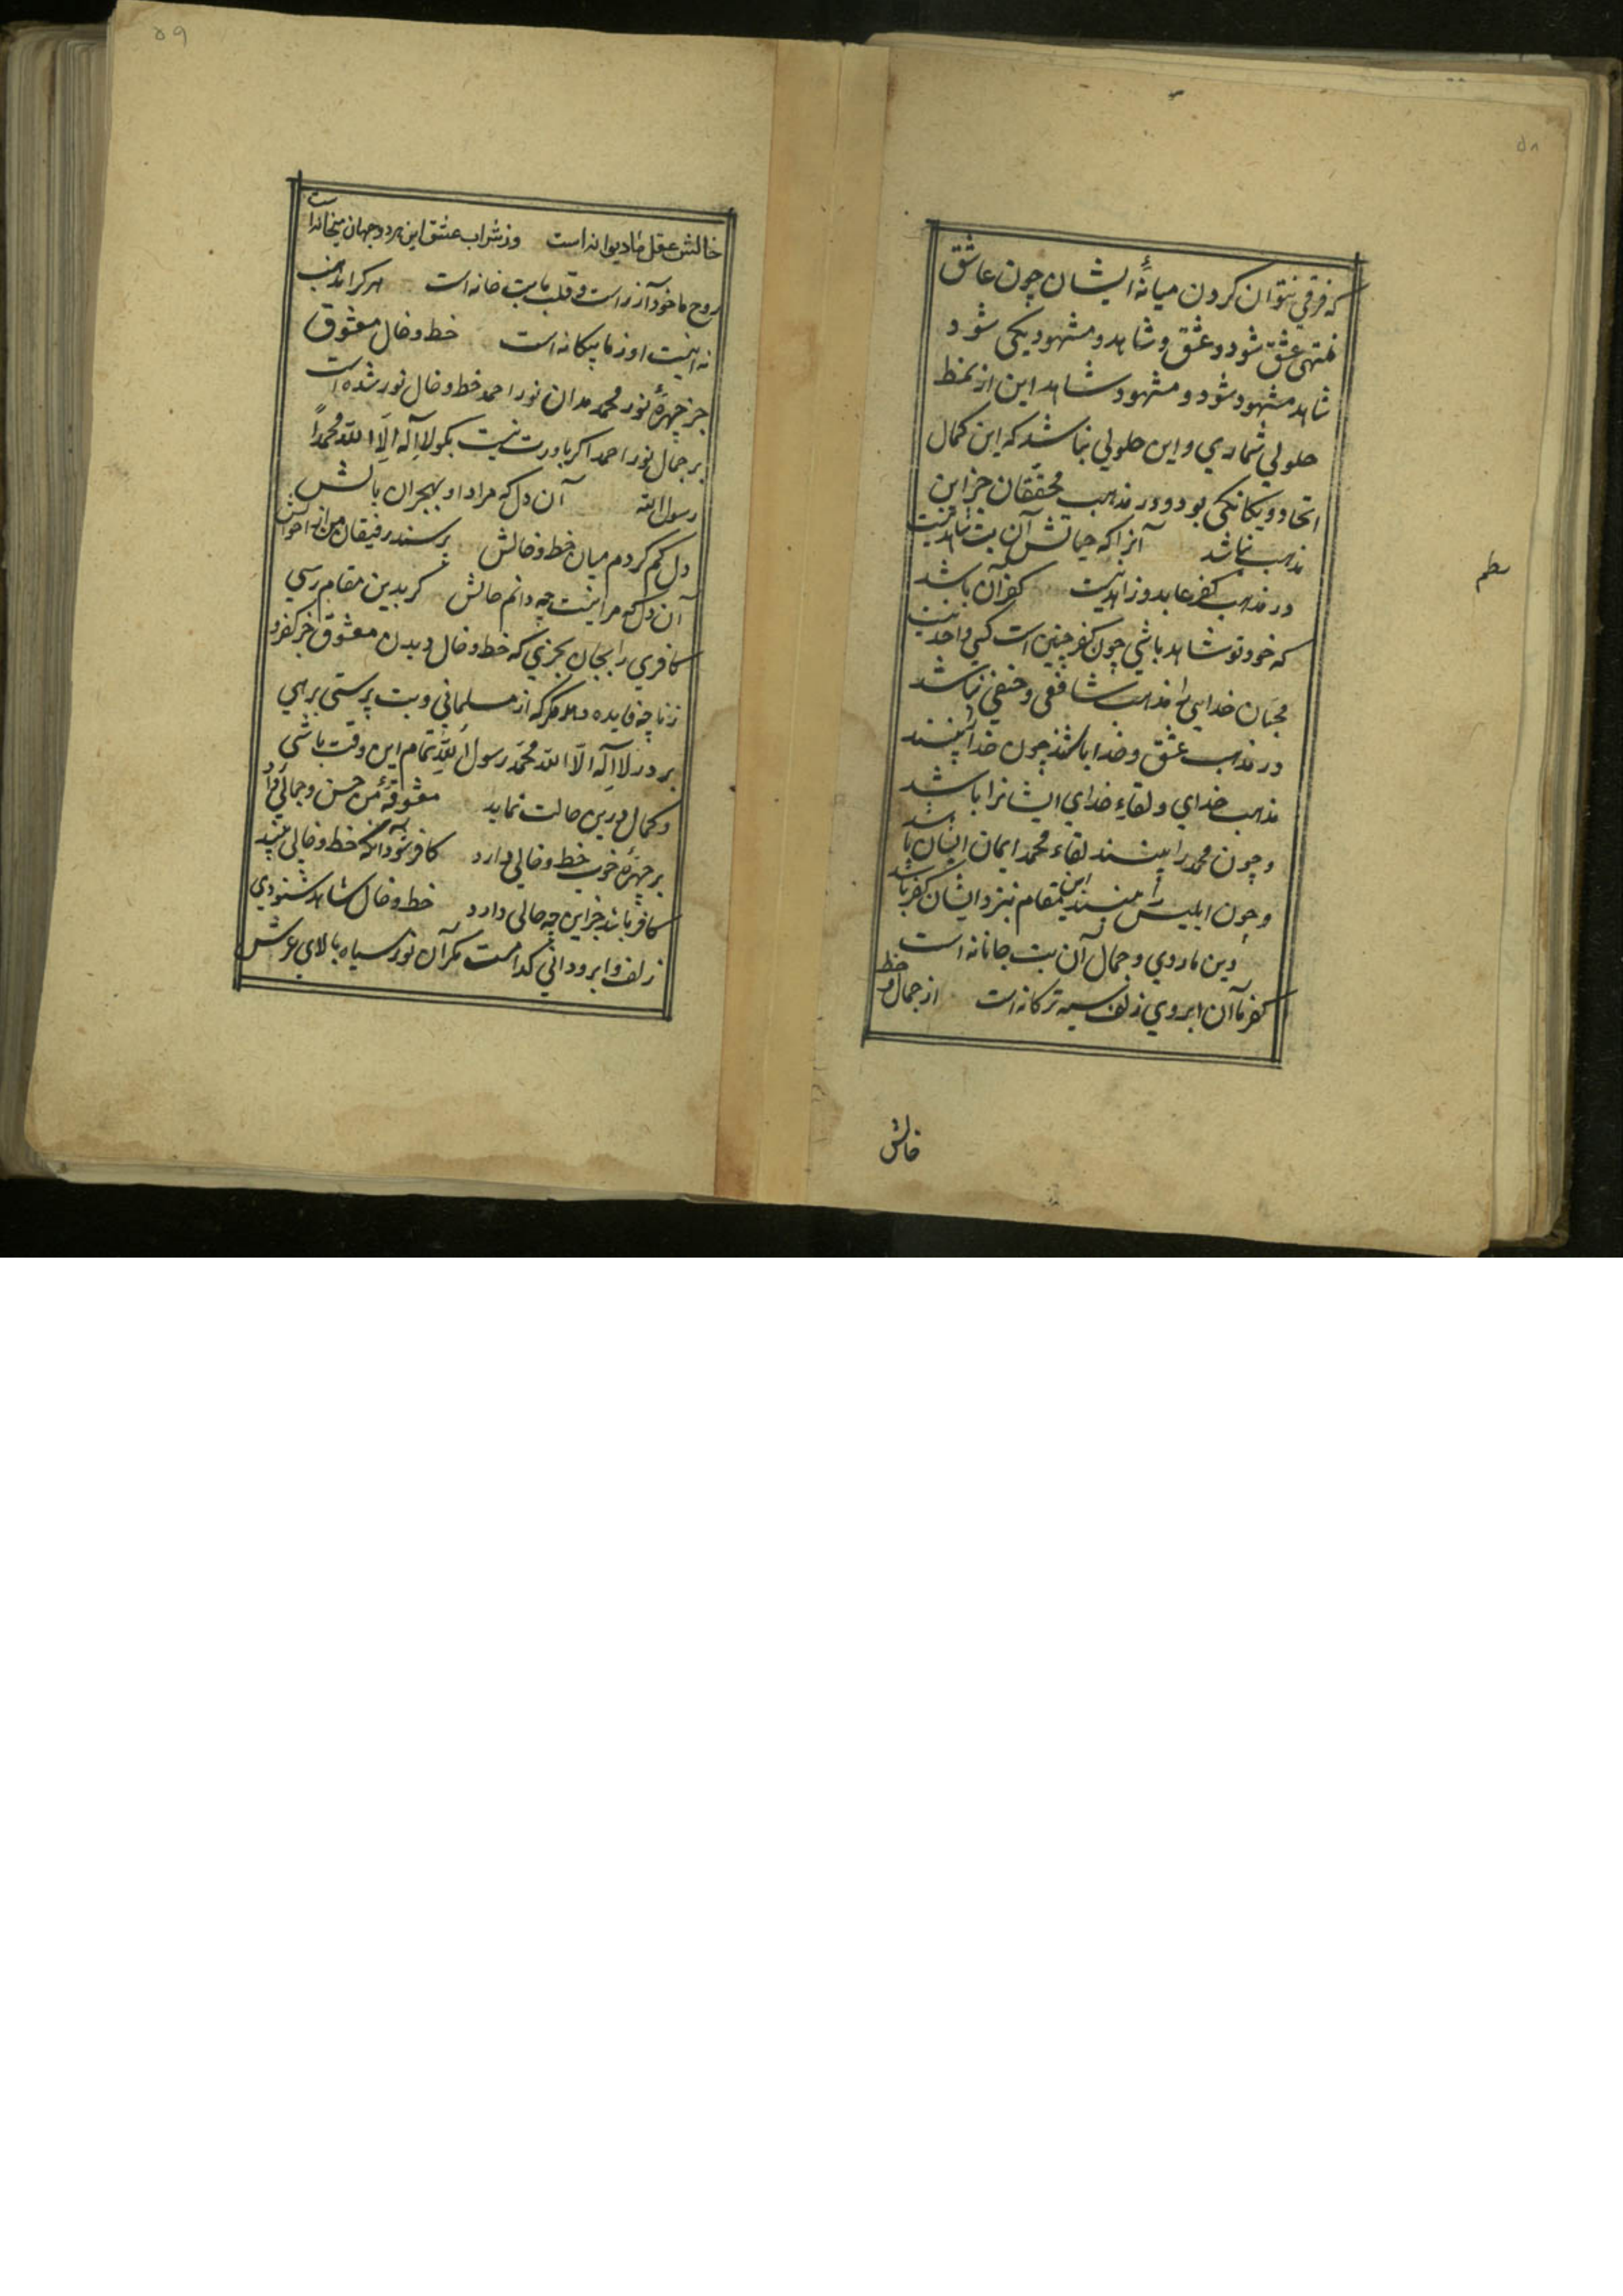 ۵۸
که فرقي نتوان کردن میانهٔ ایشان چون عاشق
منتهی عشق شود و عشق و شاهد و مشهود یکی شود
شاهد مشهود شود و مشهود شاهد این از نمط
حلولي شماري و این حلولي نباشد که این کمال
اتحاد و یکانکی بود و در مذهب محققان جز این
مذهب نباشد آنرا که حیاتش آن بت شاهد نیست
در مذهب کفر عابد و زاهد نیست کفر آن باشد
که خود تو شاهد باشي چون کفر چنین است کسي واحد نیست
محبان خدایی را مذهب شافعي و حنفي نباشد
در مذهب عشق و خدا باشند چون خدا بینند
مذهب خداي و لقاءِ خداي ایشانرا باشد
و چون محمد را بینند لقاء محمد ایمان ایشان باشد
و چون ابلیس را بینند این مقام نزد ایشان کفر باشد
دین ما روي و جمال آن بت جانانه است
کفر ما آن ابروي زلف سیه ترکانه است از جمال و خط
خالش
نظم
۵۹
خالش عقل ما دیوانه است وز شراب عشق این هر دو جهان میخانه است
روح ما خود آزر است و قلب ما بت خانه است هر کرا مذهب
نه اینست او ز ما بیکانه است خط و خال معشوق
جز چهرهٔ نور محمد مدان نور احمد خط و خال نور شده است
بر جمال نور احد اکر باورت نیست بکو لا اله الا الله محمدًا
رسول الله آن دل که مراد او بهجران بالش
دل کم کردم میان خط و خالش پرسند رفیقان من از احوالش
آن دل که مرا نیست چه دانم حالش کر بدین مقام رسي
کافري را بجان بخري که خط و خال دیدن معشوق جز کفر و
زنار چه فایده دهد مکر که از مسلماني و بت پرستی برهي
بر در لا اله الا الله محمد رسول الله تمام این وقت باشي
و کمال درین حالت نماید معشوقهٔ من حسن و جمالي دارد
بر چهرهٔ خوب خط و خالي دارد کافر شود آنکه خط و خالي بیند
کافر باشد جز این چه حالي دارد خط و خال شاهد شنودي
زلف و ابرو داني کدامست مکر آن نور سیاه بالاي عرش